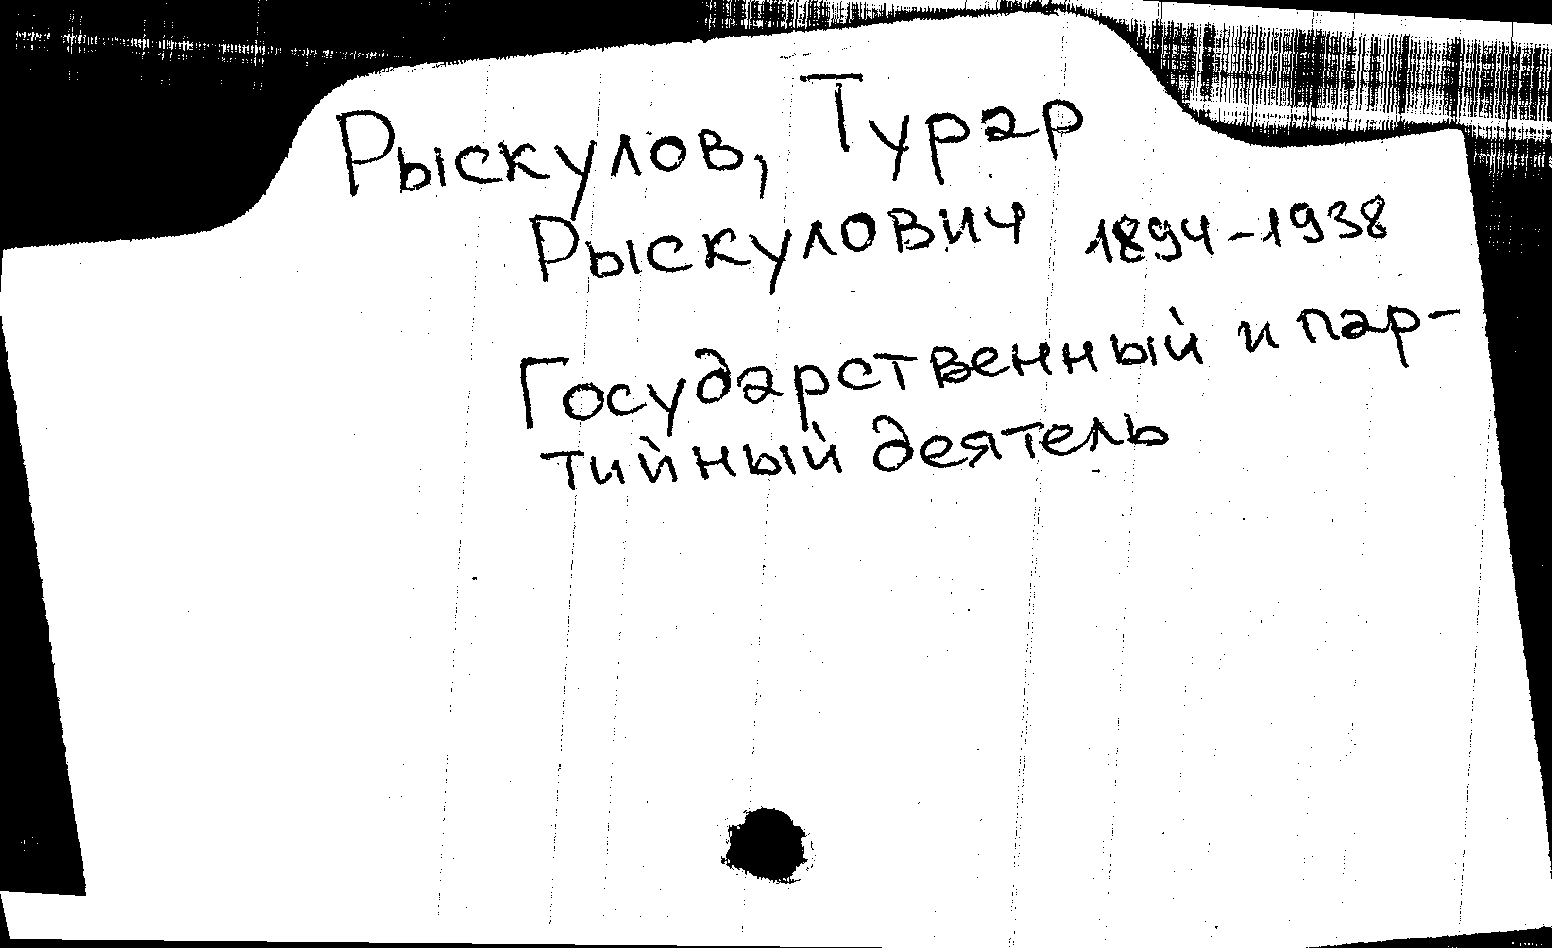 Рыскулов, Турар
Рыскулович 1894-1938
Государственный и пар-
тийный деятель